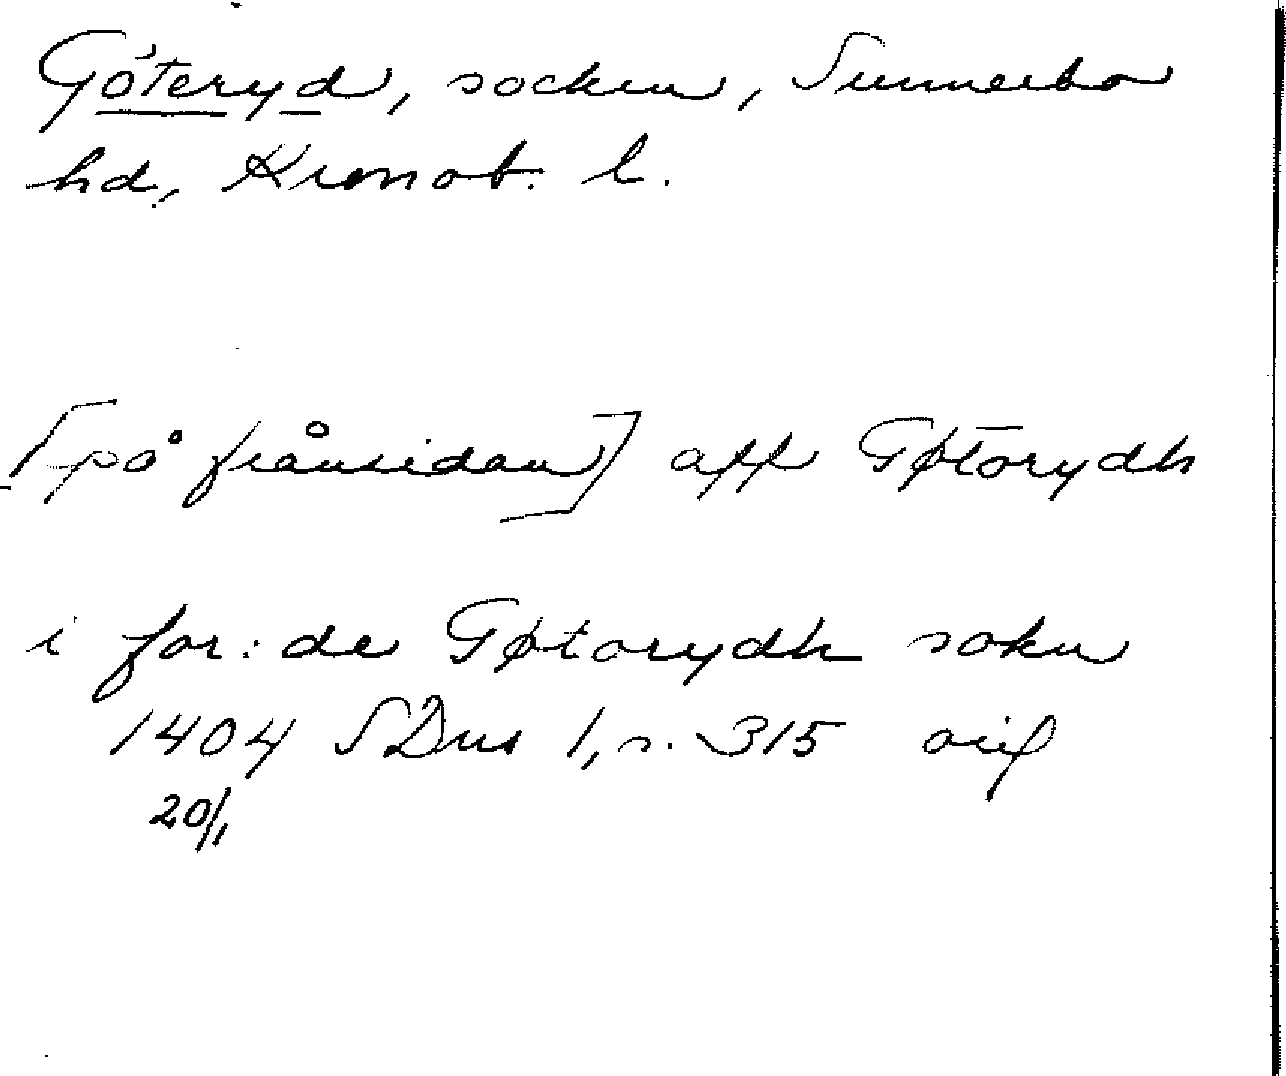 Göteryd, socken, Sunnerbo
hd, Kronob. l.
[på frånsidan] aff Gøtorydh
i for:de Gøtorydh sokn
1404 SDns 1, s. 315 orif
20/1